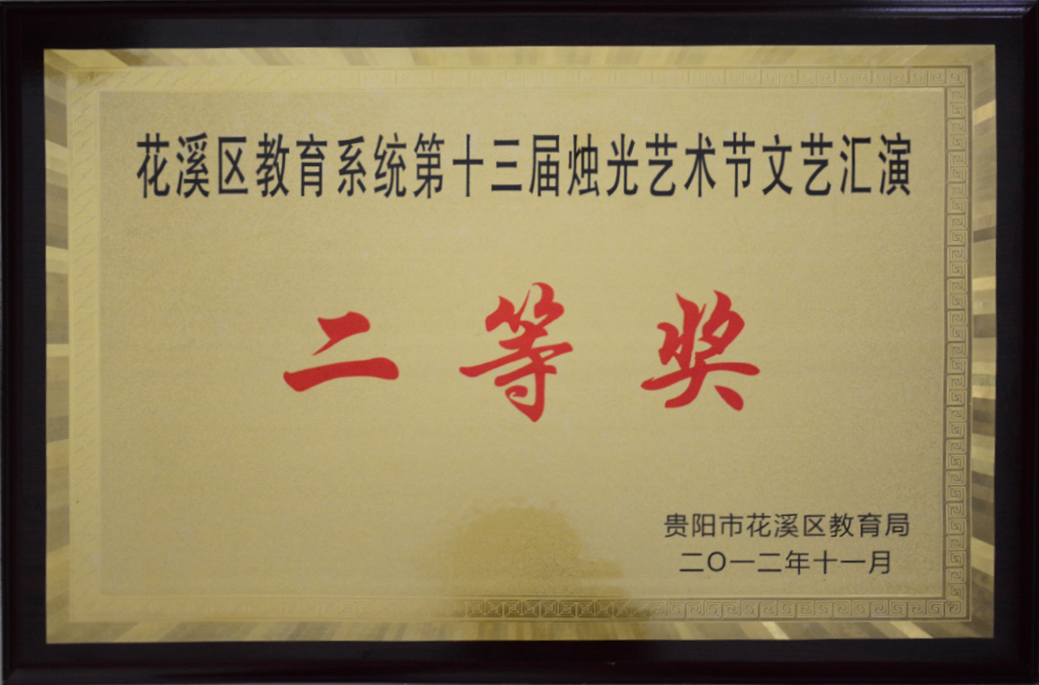 花溪区教育系统第十三届烛光艺术节文艺汇演
二等奖
贵阳市花溪区教育局
二〇一二年十一月